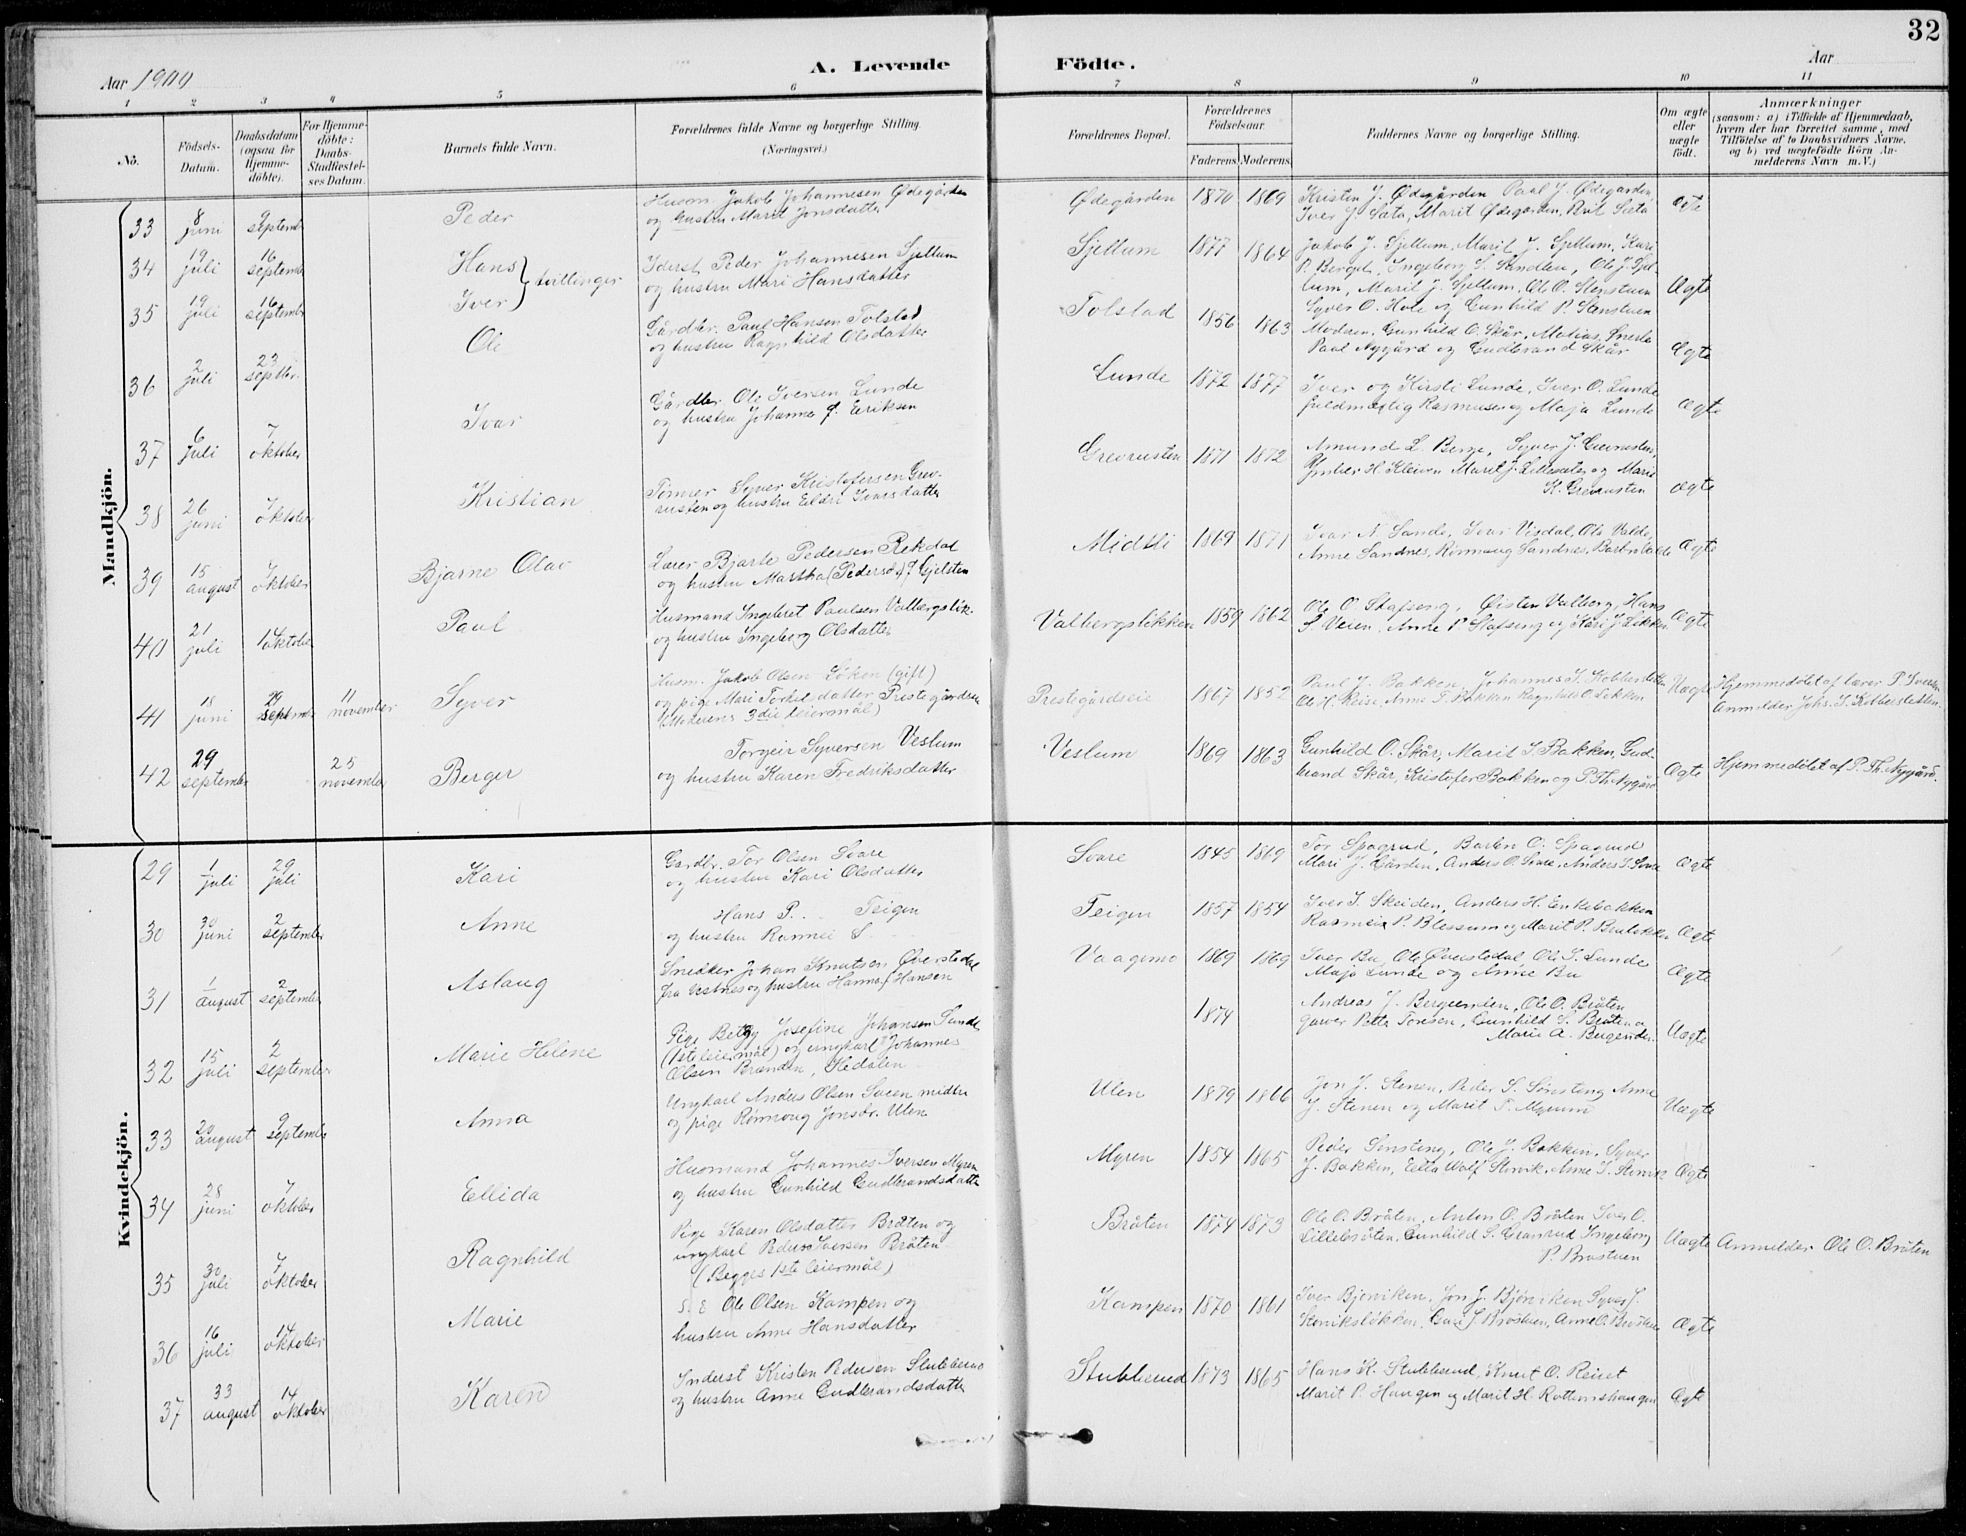 32
Aar 1900
A. Levende Födte.
Aar
1 2 3 4 5 6 7 8 9 10 11
No.
Födsels-Datum.
Daabsdatum (ogsaa for Hjemme-döbte).
For Hjemme-döbte: Daabs-Stadfestel-ses Datum.
Barnets fulde Navn.
Forældrenes fulde Navne og borgerlige Stilling.
(Næringsvei.)
Forældrenes Bopæl.
Forældrenes Födselsaar.
Faderens. Moderens.
Faddernes Navne og borgerlige Stilling.
Om ægte eller uægte födt.
Anmærkninger
(saasom: a) i Tilfælde af Hjemmedaab, hvem der har forrettet samme, med Tilföielse af to Daabsvidners Navne, og b) ved uægtefödte Börn Anmelderens Navn m. V.)
Mandkjön.
33 8 juni 2 septemb Peder
Husm. Jakob Johannesen Ødegården
og hustru Marit Jonsdatter
Ødegården 1870 1869
Kristen J. Ødegården Paul J. Ødegården
Iver J. Sæta, Marit Ødegården, Brit Sæta
34 19 juli 16 septemb Hans } tvillinger
Iderst Peder Johannesen Sjellum
og hustru Mari Hansdatter
Sjellum 1877 1864
Jakob J. Sjellum, Marit J. Sjellum, Kari
P. Berget, Ingeborg S. Sandlen, Ole J. Sjel-
lum, Marit J. Sjellum, Ole O. Stenstuen
Ægte
35 19 juli 16 septemb Iver
Syver O. Hole og Gunhild P. Stenstuen
36 2 juli 23 septbr. Ole
Gårdbr. Paul Hansen Tolstad
og hustru Ragnhild Olsdatter
Tolstad 1856 1863
Moderen, Gunhild O. Skår, Matias
Paul Nygård og Gudbrand Skår
Ægte
37 6 juli 7 oktober Ivar
Gårdbr. Ole Iversen Lunde
og hustru Johanne f. Eriksen
Lunde 1872 1877
Iver og Kirsti Lunde, Iver O. Lunde
fuldmægtig Rasmusen og Maja Lunde
Ægte
38 26 juni 7 oktober Kristian
Tømmer Syver Kristofersen Grev-
rusten og hustru Eldri Ivarsdatter
Grevrusten 1871 1872
Amund L. Berge, Syver J. Grevrusten,
H. Kleiven Marit J. Lillesæter og Marie
K. Grevrusten
Ægte
39 15 august 7 oktober Bjarne Olav
Lærer Bjarte Pedersen Rekdal
og hustru Martha (Pedersd.) f. Gjelsten
Midtli 1869 1871
Ivar N. Sande, Ivar Visdal, Ole Valde,
Anne Sandnes, Rønnaug Sandnes,
Ægte
40 21 juli 14 oktober Paul
Husmand Ingebret Paulsen Valbergsløk.
og hustru Ingeborg Olsdatter
Valbergsløkken 1859 1862
Ole O. Stafseng, Øisten Valberg, Hans
S. Veien, Anne P. Stafseng og Kari J. Løkken
Ægte
41 18 juni 29 septembr 11 november Syver
Husm. Jakob Olsen Løken (gift)
og pige Mari Torkildatter Prestegårdseie
(Moderens 3die leiermål)
Prestegårdseie 1867 1852
Paul J. Bakken, Johannes I. Kobberstetten
Ole H. Reise, Anne T. Bakken Ragnhild O. Løkken
Uægte
Hjemmedøbt af lærer P. Svensen
Anmelder Johs. I. Kobberstetten.
42 29 september 25 november Berger
Torgeir Syversen Veslum
og hustru Karen Fredriksdatter
Veslum 1869 1863
Gunhild O. Skår, Marit I. Bakken, Gud-
brand Skår, Kristofer Bakken og P. Th. Nygård
Ægte
Hjemmedøbt af P. Th. Nygård.
Kvindekjön.
29 1 juli 29 juli Kari
Gardbr. Tor Olsen Svare
og hustru Kari Olsdatter
Svare 1845 1869
Tor Spagrud, Barbro O. Spagrud
Mari J. Gården, Anders O. Svare, Anders T. Svare
Ægte
30 30 juni 2 september Anne
Hans P. Teigen
og hustru Rannei S
Teigen 1857 1854
Iver I. Skeiden, Anders H. Enkebakken
P. Blessum og Marit P.
Ægte
31 1 august 2 september Aslaug
Snedker Johan Knutsen Øverstedal
fra Vestnes og hustru Hanna f. Hansen
Vaagemo 1869 1869
Iver Bu, Ole Øverstedal, Ole I. Lunde
Maja Lunde og Anne Bu
Ægte
32 15 juli 2 september Marie Helene
Pige Betzy Josefine Johansen Sunde
(1ste leiermål) og ungkarl Johannes
Olsen Brænden, Hedalen
1874
Andreas J. Bergenden, Ole O. Bråten
garver Petter Toresen, Gunhild S. Bråten og
Marie A. Bergenden
Uægte
33 20 august 9 september Anna
Ungkarl Anders Olsen Sveen midtre
og pige Rønnoug Jonsdr. Ulen
Ulen 1879 1866
Jon J. Stenen, Peder S. Sønsteng Anne
J. Stenen og Marit T. Myrum
Uægte
34 28 juni 7 oktober Ellida
Husmand Johannes Iversen Myren
og hustru Gunhild Gudbrandsdatter
Myren 1854 1865
Peder Sønsteng, Ole J. Bakken, Syver
J. Bakken, Ella Storvik, Anne I. Storvik
Ægte
35 30 juli 7 oktober Ragnhild
Pige Karen Olsdatter Bråten og
ungkarl Peder Iversen Bråten
(Begges 1ste leiermål)
Bråten 1874 1873
Ole O. Bråten, Anton O. Bråten Iver O.
Lillebråten, Gunhild S. Granrud Ingeborg
P. Brostuen
Uægte
Anmelder Ole O. Bråten
36 16 juli 14 oktober Marie
S. E Ole Olsen Kampen og
hustru Anne Hansdatter
Kampen 1870 1861
Iver Bjørviken, Jon J. Bjørviken Syver J.
Storviksløkken, J. Brostuen, Anne O. Brostuen
Ægte
37 33 august 14 oktober Karen
Inderst Kristen Pedersen Stubberud
og hustru Anne Gudbrandsdatter
Stubberud 1873 1865
Hans K. Stubberud, Knut O. Reiret
Marit P. Haugen og Marit H. Rottemshaugen
Ægte